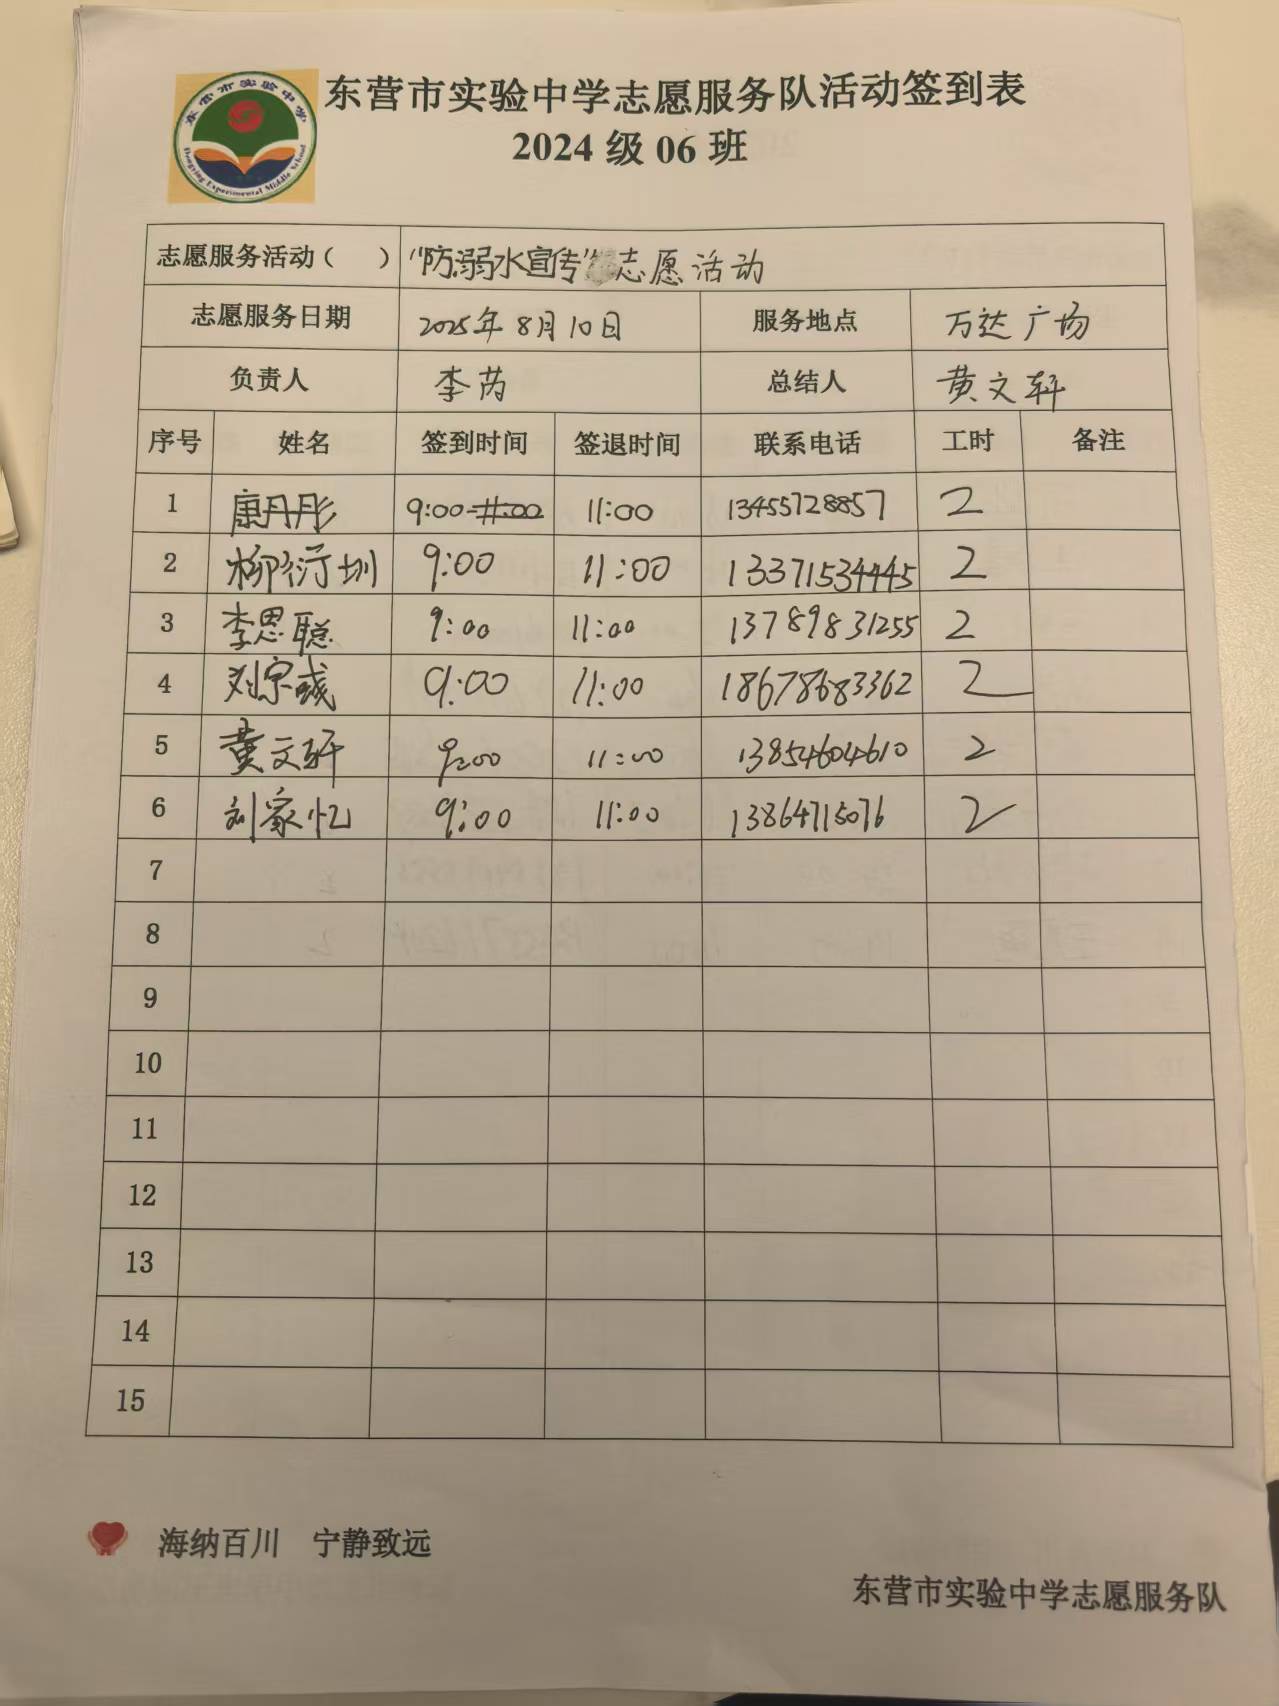 东营市实验中学
Dongying Experimental Middle School
东营市实验中学志愿服务队活动签到表
2024 级 06 班
志愿服务活动（ ） “防溺水宣传”志愿活动
志愿服务日期 2025年8月10日 服务地点 万达广场
负责人 李芮 总结人 黄文轩
序号 姓名 签到时间 签退时间 联系电话 工时 备注
1 康丹彤 9:00 11:00 13455728857 2
2 柳衍圳 9:00 11:00 13371534445 2
3 李思聪 9:00 11:00 13789831255 2
4 刘宗彧 9:00 11:00 18678683362 2
5 黄文轩 9:00 11:00 13854604610 2
6 刘家忆 9:00 11:00 13864715076 2
7
8
9
10
11
12
13
14
15
海纳百川 宁静致远
东营市实验中学志愿服务队